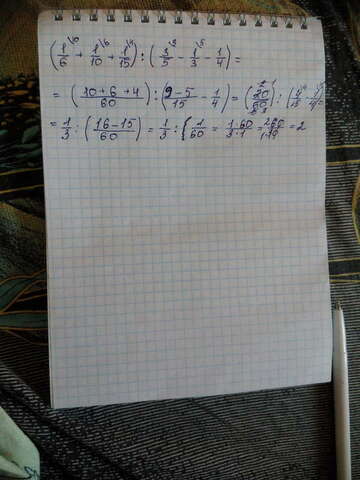 (1/6 \10 + 1/10 \6 + 1/15 \4) : (3/5 \3 - 1/3 \5 - 1/4) =
= (10+6+4/60) : (9-5/15 - 1/4) = (20/60) : (4/15 - 1/4) =
= 1/3 : (16-15/60) = 1/3 : (1/60 = 1·60/3·1 = = 2